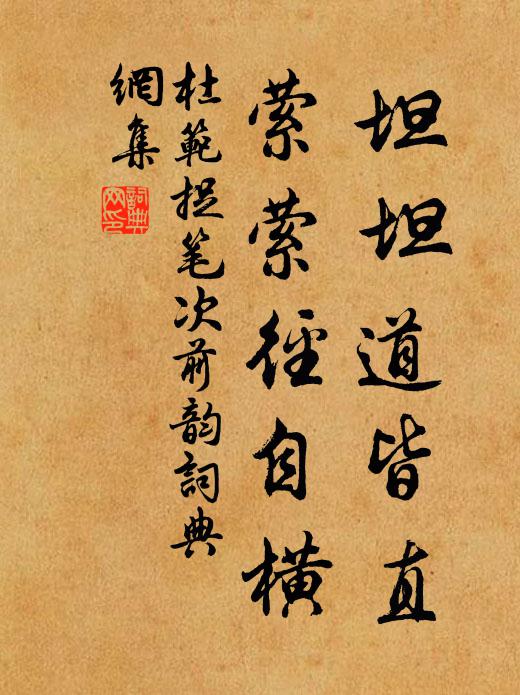 坦坦道皆直
萦萦徑自横
杜範捉笔次前韵詞典
網集
詞典
网印